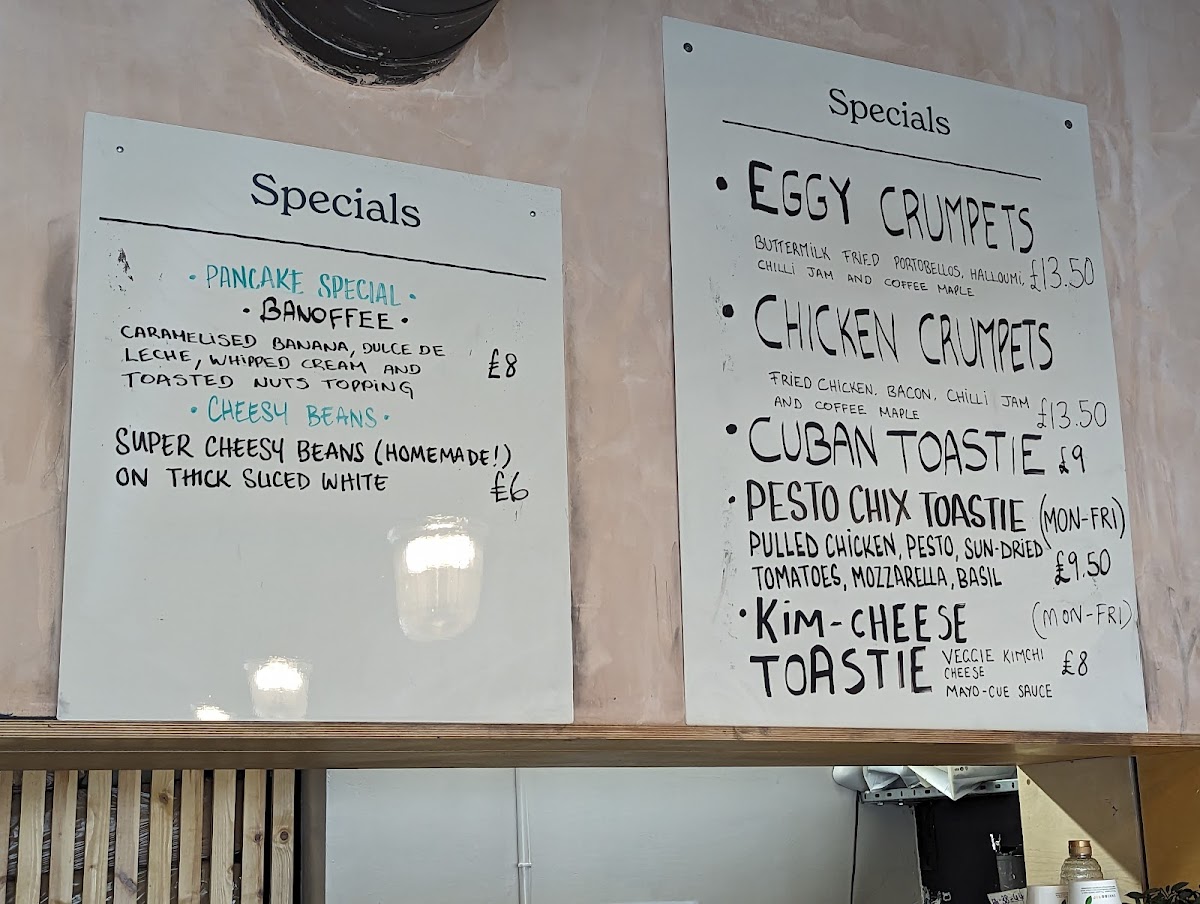 Specials
• PANCAKE SPECIAL •
• BANOFFEE •
CARAMELISED BANANA, DULCE DE
LECHE, WHIPPED CREAM AND
TOASTED NUTS TOPPING
£8
• CHEESY BEANS •
SUPER CHEESY BEANS (HOMEMADE!)
ON THICK SLICED WHITE
£6
Specials
• EGGY CRUMPETS
BUTTERMILK FRIED PORTOBELLOS, HALLOUMI,
CHILLI JAM AND COFFEE MAPLE
£13.50
• CHICKEN CRUMPETS
FRIED CHICKEN, BACON, CHILLI JAM
AND COFFEE MAPLE
£13.50
• CUBAN TOASTIE £9
• PESTO CHIX TOASTIE (MON-FRI)
PULLED CHICKEN, PESTO, SUN-DRIED
TOMATOES, MOZZARELLA, BASIL
£9.50
• KIM-CHEESE (MON-FRI)
TOASTIE
VEGGIE KIMCHI
CHEESE
MAYO-CUE SAUCE
£8